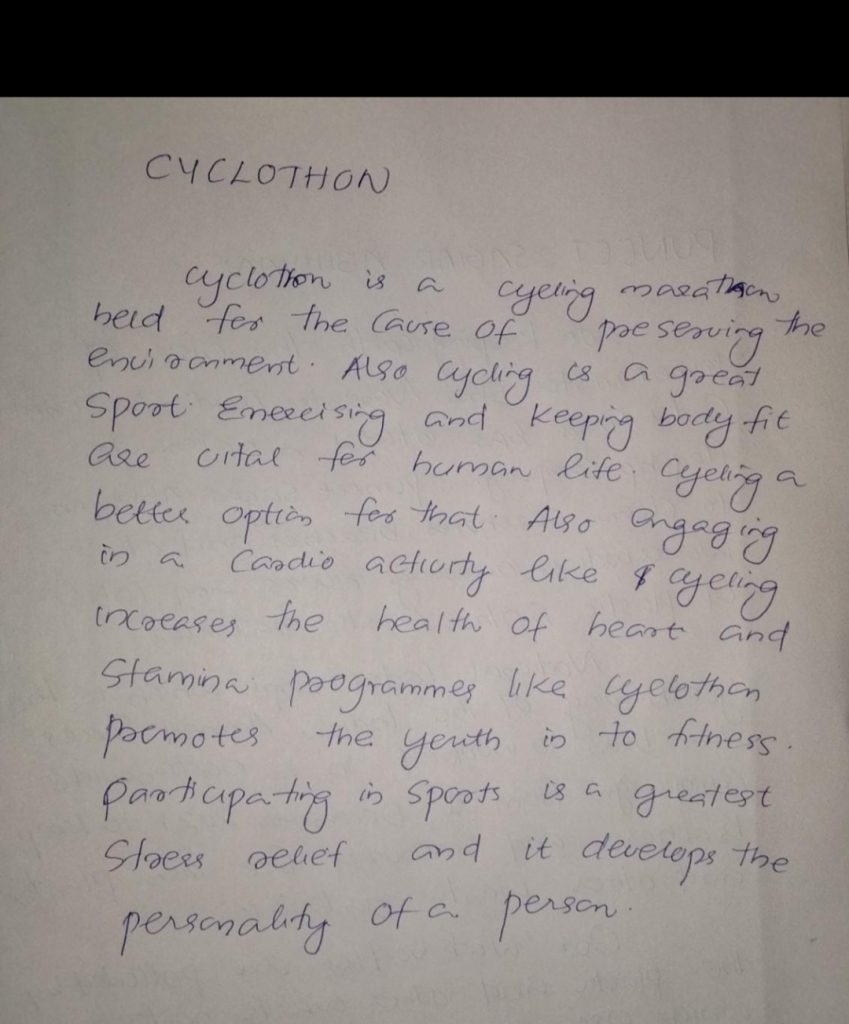 CYCLOTHON
Cyclothon is a cycling marathon
held for the Cause of preserving the
environment. Also Cycling is a great
Sport. Enexcising and keeping body fit
are vital for human life. Cycling a
better option for that. Also engaging
in a Cardio activity like cycling
increases the health of heart and
Stamina. programmes like cyclothon
promotes the youth in to fitness.
Participating in Sports is a greatest
Stress relief and it develops the
personality of a person.